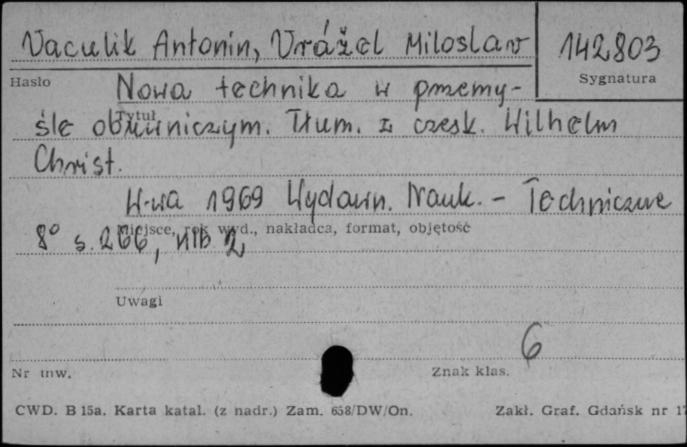 Vaculik Antonin, Vrážel Miloslav
142803
Hasło
Sygnatura
Nowa technika w przemy-
Tytuł
śle obuwniczym. Tłum. z czesk. Wilhelm
Christ.
W-wa 1969 Wydawn. Nauk. - Techniczne
Miejsce, rok wyd., nakładca, format, objętość
8° s. 266, nlb 2
Uwagi
6
Nr inw.
Znak klas.
CWD. B 15a. Karta katal. (z nadr.) Zam. 658/DW/On.
Zakł. Graf. Gdańsk nr